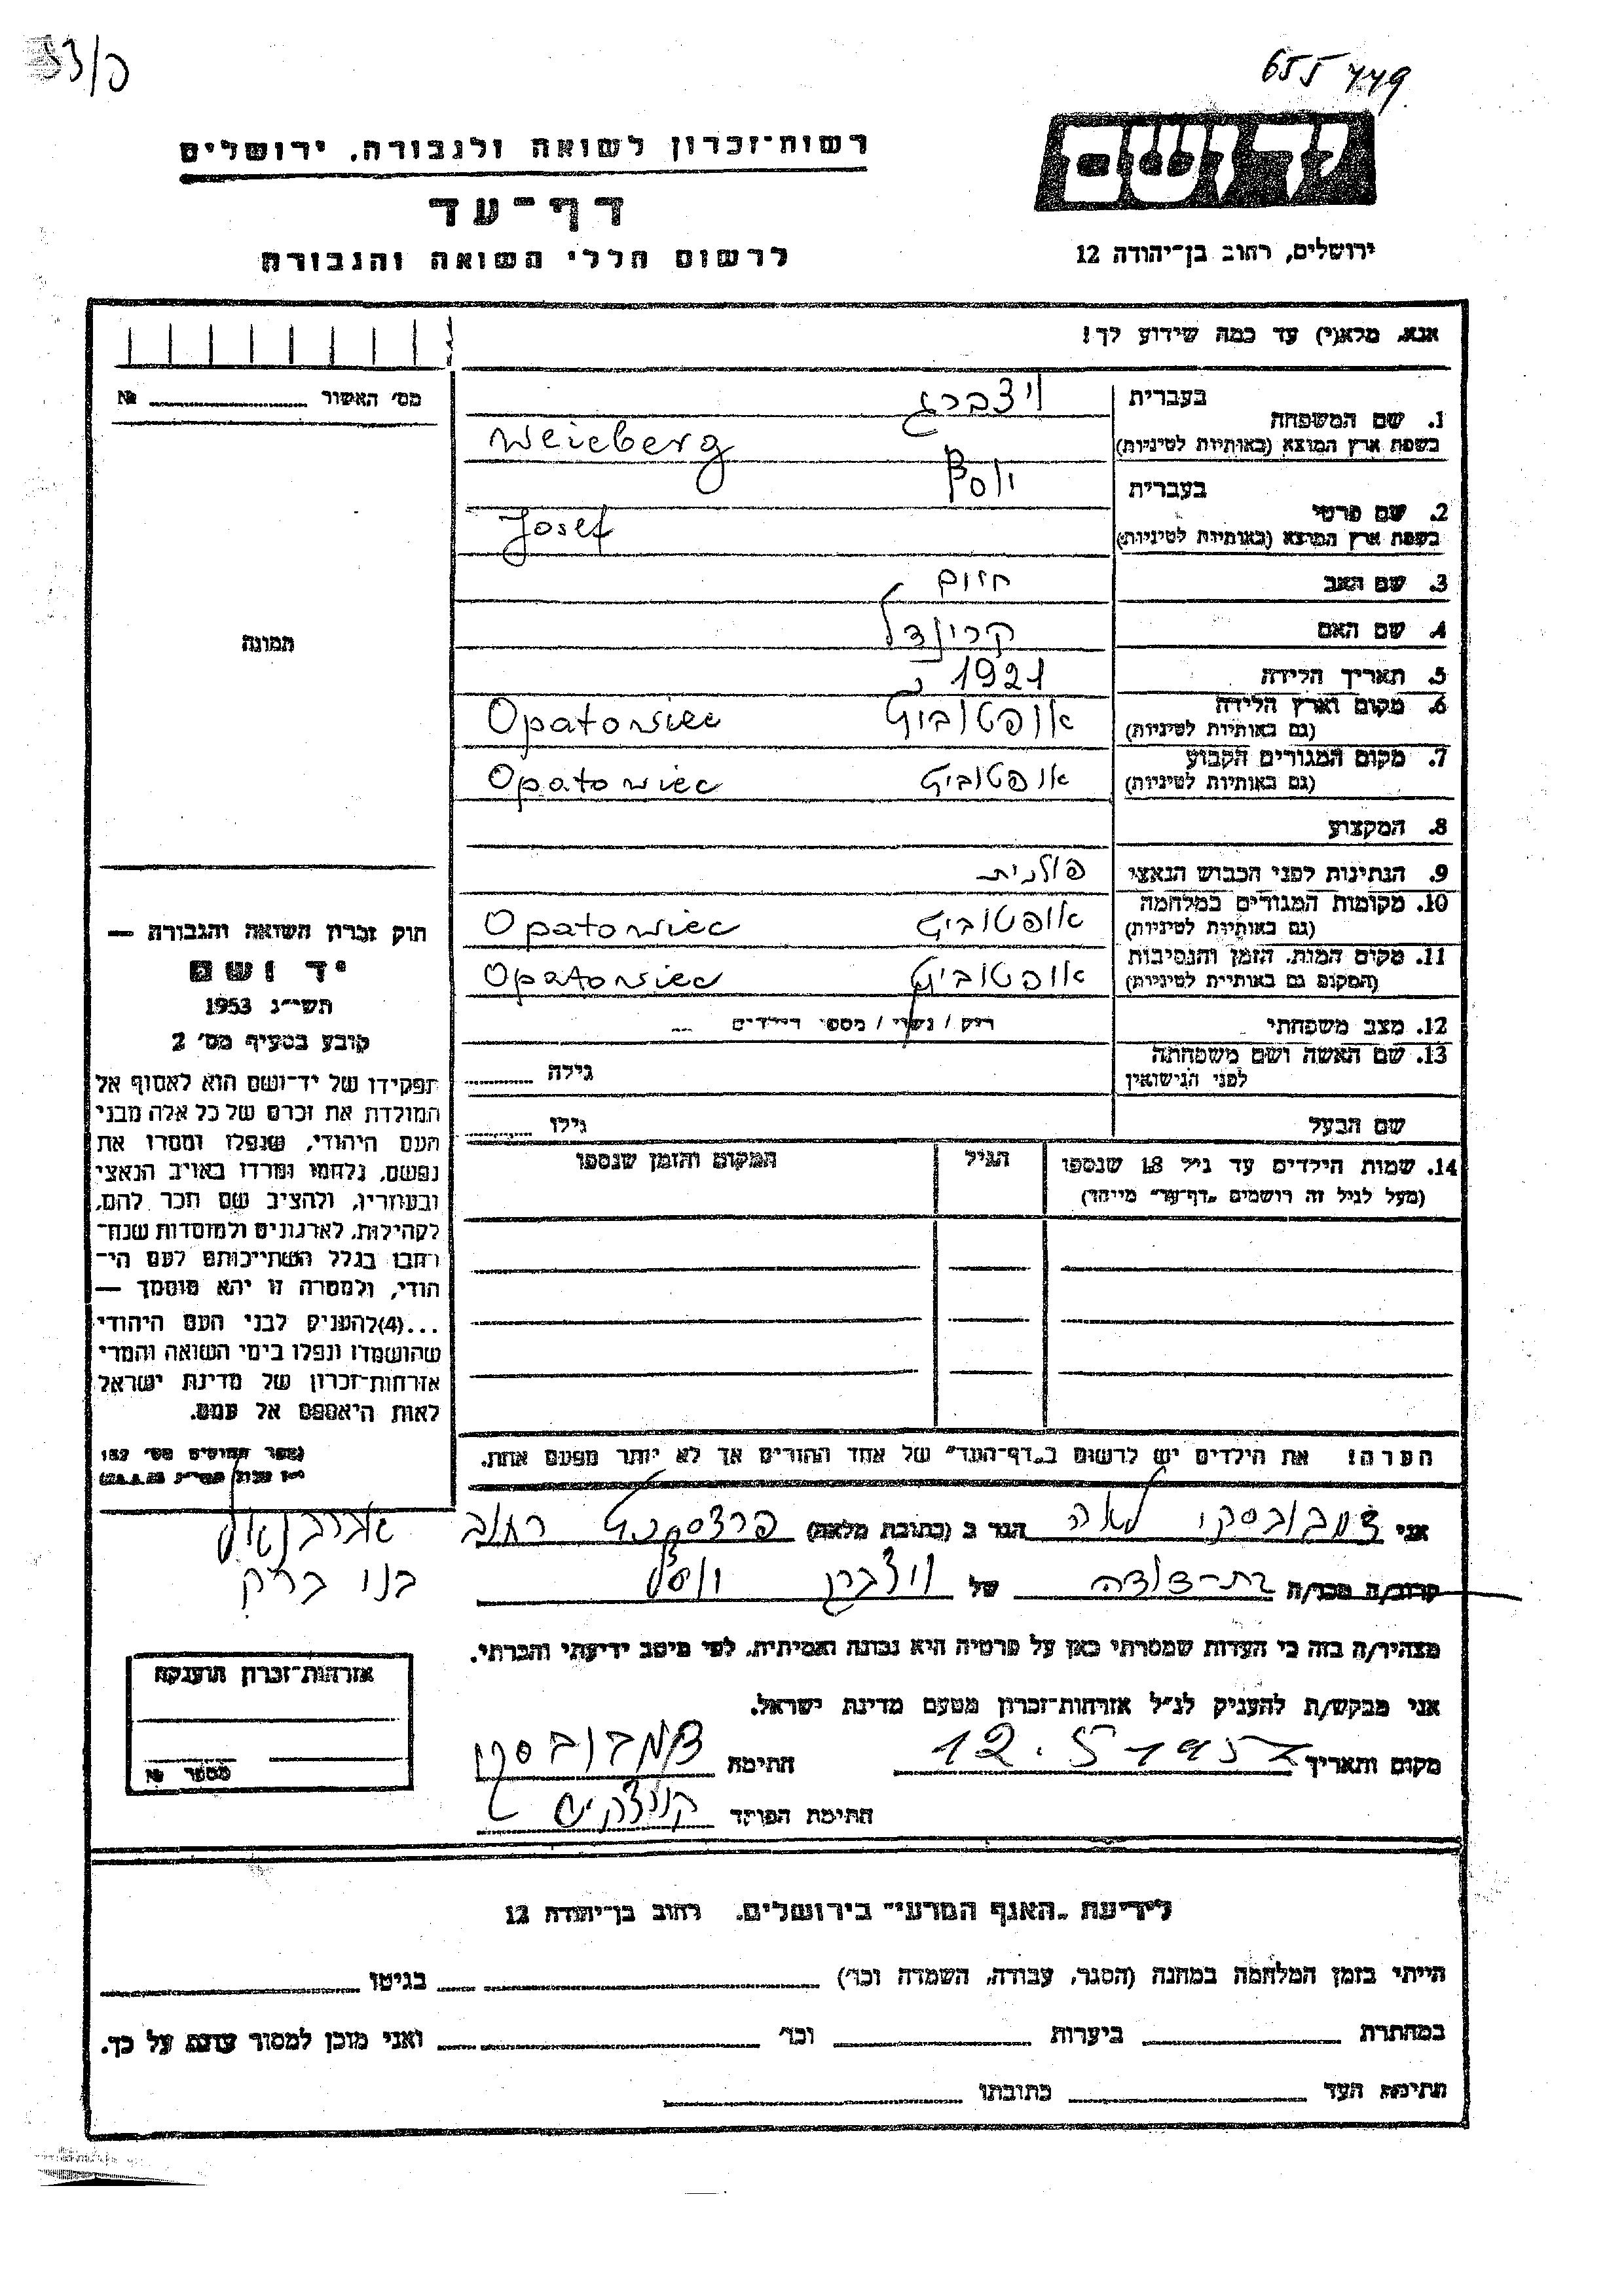 655 779
רשות־זכרון לשואה ולגבורה, ירושלים
דף־עד
לרשום חללי השואה והגבורה
יד ושם
ירושלים, רחוב בן־יהודה 12
אנא, מלא(י) עד כמה שידוע לך!
מס׳ האשור № 
1. שם המשפחה בעברית ויצברג
בשפת ארץ המוצא (באותיות לטיניות) Weieberg
2. שם פרטי בעברית יוסף
בשפת ארץ המוצא (באותיות לטיניות) Josef
3. שם האב חיים
4. שם האם קריינדל
5. תאריך הלידה 1921
6. מקום וארץ הלידה (גם באותיות לטיניות) אופטוביץ Opatowiec
7. מקום המגורים הקבוע (גם באותיות לטיניות) אופטוביץ Opatowiec
8. המקצוע
9. הנתינות לפני הכבוש הנאצי פולנית
10. מקומות המגורים במלחמה (גם באותיות לטיניות) אופטוביץ Opatowiec
11. מקום המות, הזמן והנסיבות (המקום גם באותיות לטיניות) אופטוביץ Opatowiec
12. מצב משפחתי רווק / נשוי / מספר הילדים
13. שם האשה ושם משפחתה לפני הנישואין גילה
שם הבעל גילו
14. שמות הילדים עד גיל 18 שנספו הגיל המקום והזמן שנספו
(מעל לגיל זה רושמים „דף־עד״ מיוחד)
תמונה
חוק זכרון השואה והגבורה —
יד ושם
תשי״ג 1953
קובע בסעיף מס׳ 2
תפקידו של יד־ושם הוא לאסוף אל
המולדת את זכרם של כל אלה מבני
העם היהודי, שנפלו ומסרו את
נפשם, נלחמו ומרדו באויב הנאצי
ובעוזריו, ולהציב שם וזכר להם,
לקהילות, לארגונים ולמוסדות שנח־
רבו בגלל השתייכותם לעם הי־
הודי, ולמטרה זו יהא מוסמך —
...(4)להעניק לבני העם היהודי
שהושמדו ונפלו בימי השואה והמרי
אזרחות־זכרון של מדינת ישראל
לאות היאספם אל עמם.
(ספר החוקים מס׳ 132
הערה! את הילדים יש לרשום ב„דף־העד״ של אחד ההורים אך לא יותר מפעם אחת.
אני לאה הגר ב (כתובת מלאה) רחוב אברבנאל
בני ברק
קרוב/ה מכר/ה בת-דודה של ויצברג יוסף
מצהיר/ה בזה כי העדות שמסרתי כאן על פרטיה היא נכונה ואמיתית, לפי מיטב ידיעתי והכרתי.
אני מבקש/ת להעניק לנ״ל אזרחות־זכרון מטעם מדינת ישראל.
מקום ותאריך 12.5.1957 חתימה
חתימת הפוקד
אזרחות־זכרון הוענקה
מספר №
לידיעת „האגף המדעי״ בירושלים, רחוב בן־יהודה 12
הייתי בזמן המלחמה במחנה (הסגר, עבודה, השמדה וכו׳) בגיטו
במחתרת ביערות וכו׳ ואני מוכן למסור עדות על כך.
חתימת העד כתובתו